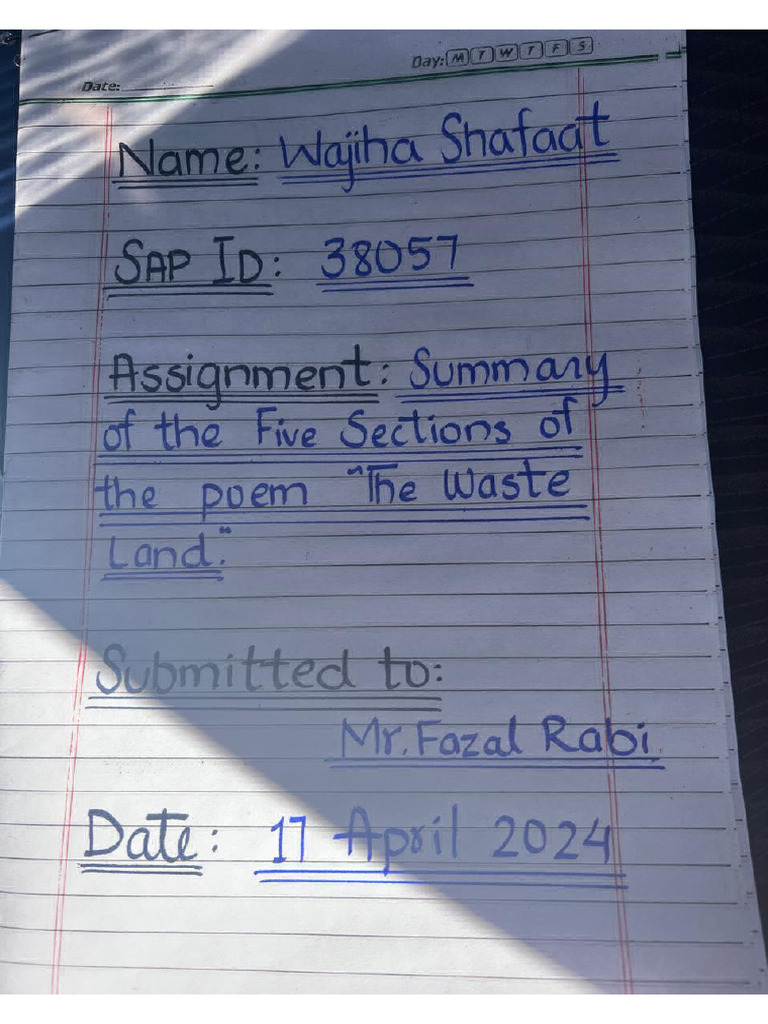 Day: M T W T F S
Date:
Name: Wajiha Shafaat
SAP ID: 38057
Assignment: Summary
of the Five Sections of
the poem "The Waste
Land."
Submitted to:
Mr. Fazal Rabi
Date: 17 April 2024